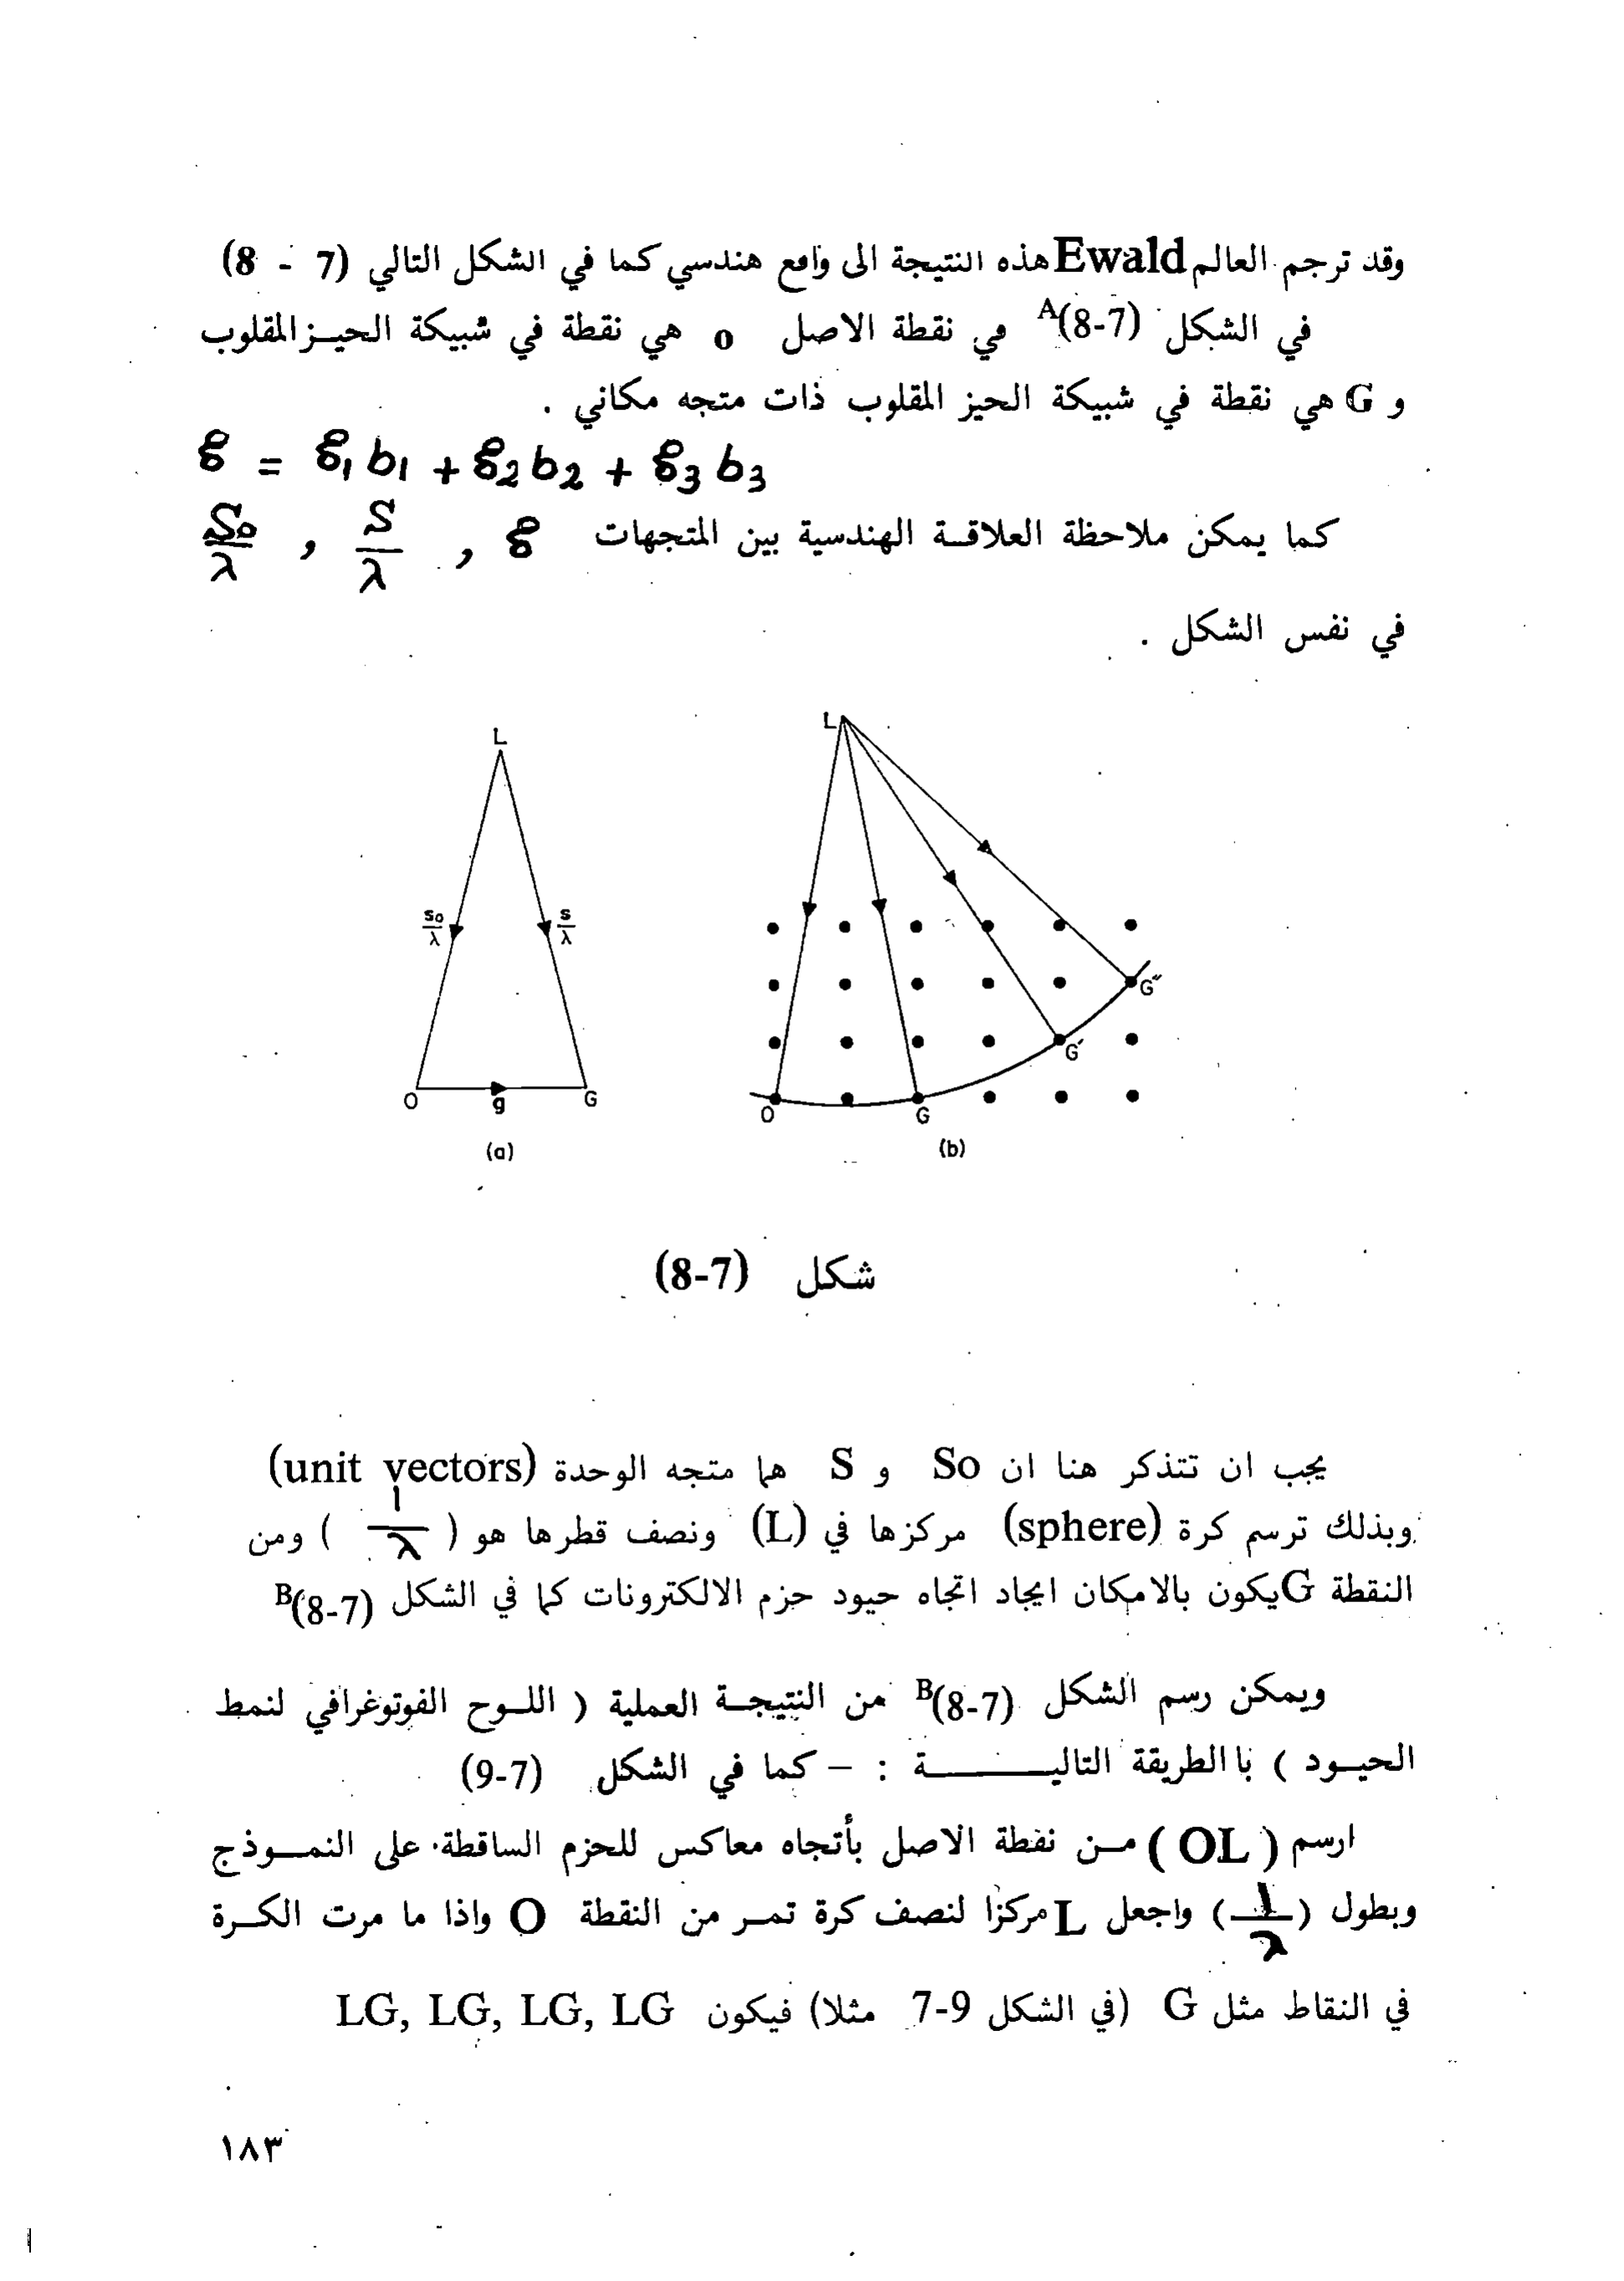 وقد ترجم العالم Ewald هذه النتيجة الى واقع هندسي كما في الشكل التالي (7 - 8)
في الشكل A(8-7) في نقطة الاصل o هي نقطة في شبيكة الحيـز المقلوب
و G هي نقطة في شبيكة الحيز المقلوب ذات متجه مكاني .
g = g₁ b₁ + g₂ b₂ + g₃ b₃
كما يمكن ملاحظة العلاقـة الهندسية بين المتجهات g , S/λ , S₀/λ
في نفس الشكل .
L
s₀/λ
s/λ
O
g
G
(a)
L
G″
G′
O
G
(b)
شكل (8-7)
يجب ان تتذكر هنا ان So و S هما متجه الوحدة (unit vectors)
وبذلك ترسم كرة (sphere) مركزها في (L) ونصف قطرها هو ( 1/λ ) ومن
النقطة G يكون بالامكان ايجاد اتجاه حيود حزم الالكترونات كما في الشكل B(8-7)
ويمكن رسم الشكل B(8-7) من النتيجـة العملية ( اللـوح الفوتوغرافي لنمط
الحيـود ) با الطريقة التاليــــة : – كما في الشكل (9-7)
ارسم ( OL ) مـن نقطة الاصل بأتجاه معاكس للحزم الساقطة على النمـوذج
وبطول (1/λ) واجعل L مركزا لنصف كرة تمـر من النقطة O واذا ما مرت الكـرة
في النقاط مثل G (في الشكل 9-7 مثلا) فيكون LG, LG, LG, LG
١٨٣